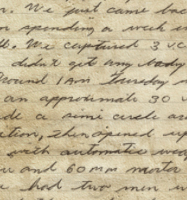 . We just came back
spending a week in
. We captured 3 VC
didn't get any body
round 1 AM Thursday
an approximate 30
de a semi circle and
tion, then opened up
with automatic wea
and 60mm mortar
had two men w